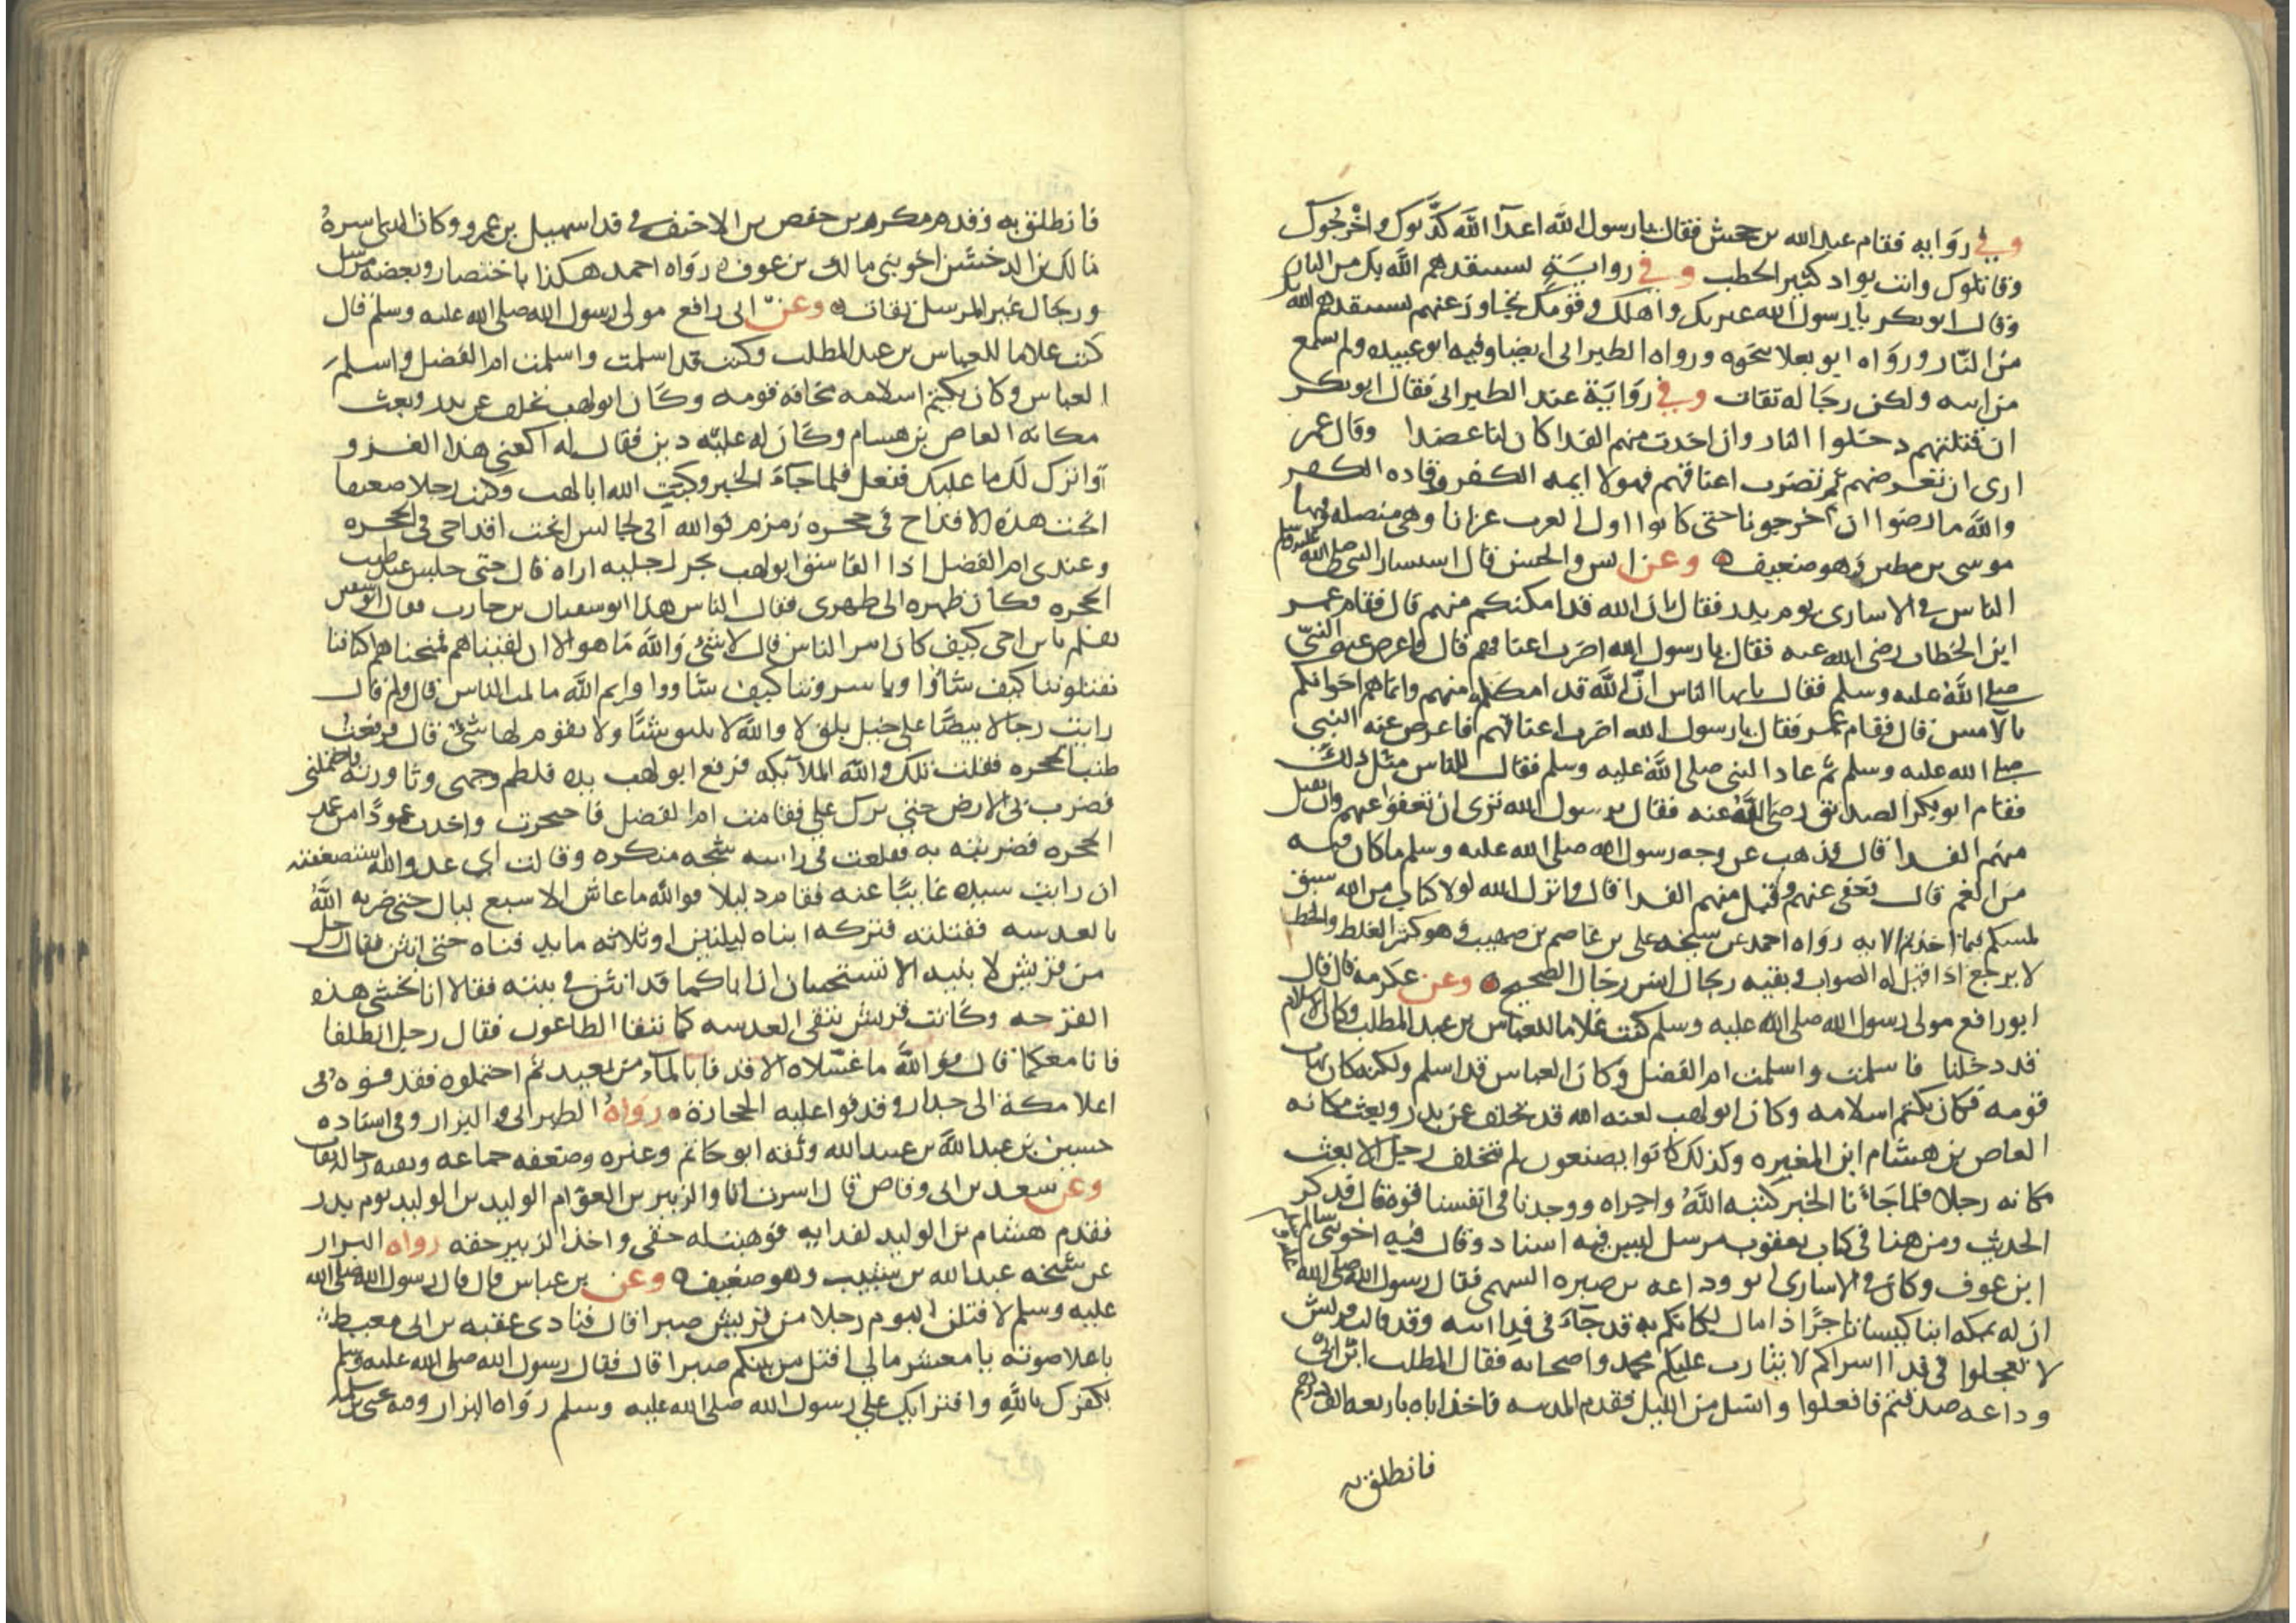 وفي رواية فقام عبد الله بن جحش فقال يا رسول الله اعدآ الله كذبوك واخرجوك
وقاتلوك وانت بواد كثير الحطب وفي رواية لستنقذهم الله بك من النار
وقال ابو بكر يا رسول الله عترتك واهلك وقومك تجاوز عنهم يستنقذهم الله بك
من النار ورواه ابو يعلا بنحوه ورواه الطبراني ايضا وفيه ابو عبيده ولم يسمع
من ابيه ولكن رجاله ثقات وفي رواية عند الطبراني فقال ابو بكر
ان قتلتهم دخلوا النار وان اخدت منهم الفدا كانوا لنا عضدا وقال عمر
ارى ان تعرضهم ثم تضرب اعناقهم فهولا ايمه الكفر وقاده الكفر
والله ما رضوا ان اخرجونا حتى كانوا اول العرب غزانا وهي متصله وفيها
موسى بن مطير وهو ضعيف وعن انس والحسن قال استشار النبي صلى الله عليه وسلم
الناس في الاسارى يوم بدر فقال ان الله قد امكنكم منهم قال فقام عمر
ابن الخطاب رضي الله عنه فقال يا رسول الله اضرب اعناقهم قال فاعرض عنه النبي
صلى الله عليه وسلم فقال يا ايها الناس ان الله قد امكنكم منهم وانما هم اخوانكم
بالامس قال فقام عمر فقال يا رسول الله اضرب اعناقهم فاعرض عنه النبي
صلى الله عليه وسلم ثم عاد النبي صلى الله عليه وسلم فقال للناس مثل ذلك
فقام ابو بكر الصديق رضي الله عنه فقال يا رسول الله نرى ان تعفوا عنهم وان تقبل
منهم الفدا قال فذهب عن وجه رسول الله صلى الله عليه وسلم ما كان فيه
من الغم قال فعفى عنهم وقبل منهم الفدا قال وانزل الله لولا كتاب من الله سبق
لمسكم فيما اخذتم الايه رواه احمد عن شيخه علي بن عاصم بن صهيب وهو كثير الغلط والخطا
لا يرجع اذا قيل له الصواب وبقيه رجال احمد رجال الصحيح وعن عكرمه قال قال
ابو رافع مولى رسول الله صلى الله عليه وسلم كنت غلاما للعباس بن عبد المطلب وكان الاسلام
قد دخلنا فاسلمت واسلمت ام الفضل وكان العباس قد اسلم ولكنه كان يهاب
قومه فكان يكتم اسلامه وكان ابو لهب لعنه الله قد تخلف عن بدر وبعث مكانه
العاص بن هشام ابن المغيره وكذلك كانوا يصنعون لم يتخلف رجل الا بعث
مكانه رجلا فلما جاءنا الخبر كبته الله واخزاه ووجدنا في انفسنا قوة قال فذكر
الحديث ومن هنا في كتاب يعقوب مرسل ليس فيه اسناد وقال فيه اخو بني سالم
ابن عوف وكان في الاسارى ابو وداعه بن صبره السهمي فقال رسول الله صلى الله عليه وسلم
ان له بمكه ابنا كيسا تاجرا ذا مال لكانكم به قد جآء في فدا ابيه وقد قالت قريش
لا تعجلوا في فدا اسراكم لا يتارب عليكم محمد واصحابه فقال المطلب ابن ابي
وداعه صدقتم فافعلوا وانسل من الليل فقدم المدينه فاخذ اباه باربعه الف درهم
فانطلق به
فانطلق به وقدم مكرم بن حفص بن الاخيف في فدا سهيل بن عمرو وكان الذي اسره
مالك بن الدخشن اخو بني مالك بن عوف رواه احمد هكذا باختصار وبعضه مرسل
ورجال غير المرسل ثقات وعن ابي رافع مولى رسول الله صلى الله عليه وسلم قال
كنت غلاما للعباس بن عبد المطلب وكنت قد اسلمت واسلمت ام الفضل واسلم
العباس وكان يكتم اسلامه مخافة قومه وكان ابو لهب تخلف عن بدر وبعث
مكانه العاص بن هشام وكان له عليه دين فقال له اكفني هذا الغزو
واترك لك ما عليك ففعل فلما جاء الخبر وكبت الله ابا لهب وكنت رجلا ضعيفا
انحت هذه الاقداح في حجره زمزم فوالله اني لجالس انحت اقداحي في الحجره
وعندي ام الفضل اذا الفاسق ابو لهب يجر رجليه اراه قال حتى جلس عند طنب
الحجره فكان ظهره الى ظهرى فقال الناس هذا ابو سفيان بن حارب فقال ابو لهب
هلم يا بن اخي كيف كان امر الناس قال لا شئ والله ما هو الا ان لقيناهم فمنحناهم اكتافنا
يقتلوننا كيف شاؤا وياسروننا كيف شاووا وايم الله ما لمت الناس قال ولم قال
رايت رجالا بيضا على خيل بلق لا والله لا تليق شئا ولا يقوم لها شئ قال فرفعت
طنب الحجره فقلت تلك والله الملائكه فرفع ابو لهب يده فلطم وجهي وثاورته فاحتملني
فضرب بي الارض حتى برك علي فقامت ام الفضل فاحتجزت واخدت عمودا من عمد
الحجره فضربته به ففلعت في راسه شجه منكره وقالت اي عدو الله استضعفته
ان رايت سيده غايبا عنه فقام ذليلا فوالله ما عاش الا سبع ليال حتى ضربه الله
بالعدسه فقتلته فتركه ابناه ليلتين او ثلاثه ما يدفناه حتى انتن فقال رجل
من قريش لابنيه الا تستحيان ان اباكما قد انتن في بيته فقالا انا نخشى هذه
القرحه وكانت قريش تتقي العدسه كما تتقا الطاعون فقال رجل انطلقا
فانا معكما قال فوالله ما غسلاه الا قذفا بالماء من بعيد ثم احتملوه فقذفوه في
اعلا مكة الى جدار وقذفوا عليه الحجارة رواه الطبراني والبزار وفي اسناده
حسين بن عبد الله بن عبيد الله وثقه ابو حاتم وغيره وضعفه جماعه وبقيه رجاله ثقات
وعن سعد بن ابي وقاص قال اسرت انا والزبير بن العوام الوليد بن الوليد يوم بدر
فقدم هشام بن الوليد لفدايه فوهبت له حقي واخذ الزبير حقه رواه البزار
عن شيخه عبد الله بن شبيب وهو ضعيف وعن بن عباس قال قال رسول الله صلى الله
عليه وسلم لاقتلن اليوم رجلا من قريش صبرا قال فنادى عقبه بن ابي معيط
باعلا صوته يا معشر مالي اقتل من بينكم صبرا قال فقال رسول الله صلى الله عليه وسلم
بكفرك بالله وافترايك علي رسول الله صلى الله عليه وسلم رواه البزار وفيه يحيى بن سلمه